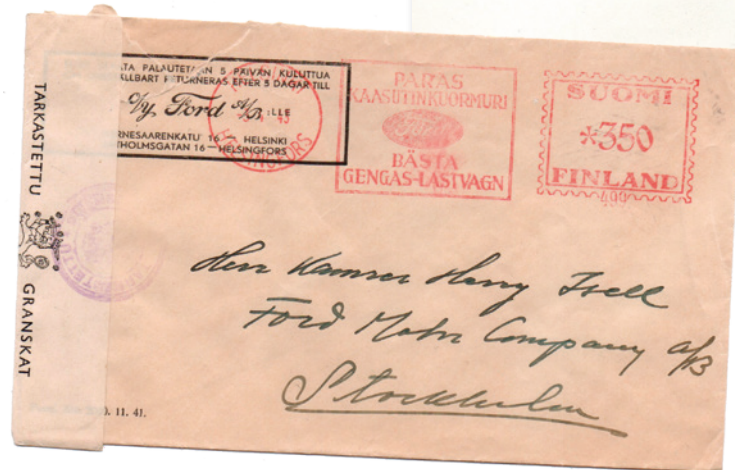 TARKASTETTU
GRANSKAT
PALAUTETAAN 5 PÄIVÄN KULUTTUA
RETURNERAS EFTER 5 DAGAR TILL
O/y. Ford A/B. :LLE
16 HELSINKI
16 — HELSINGFORS
HELSINGFORS
43
PARAS
KAASUTINKUORMURI
Ford
BÄSTA
GENGAS-LASTVAGN
SUOMI
*350
FINLAND
Herr Henry
Ford Motor Company a/B
Stockholm
11. 41.